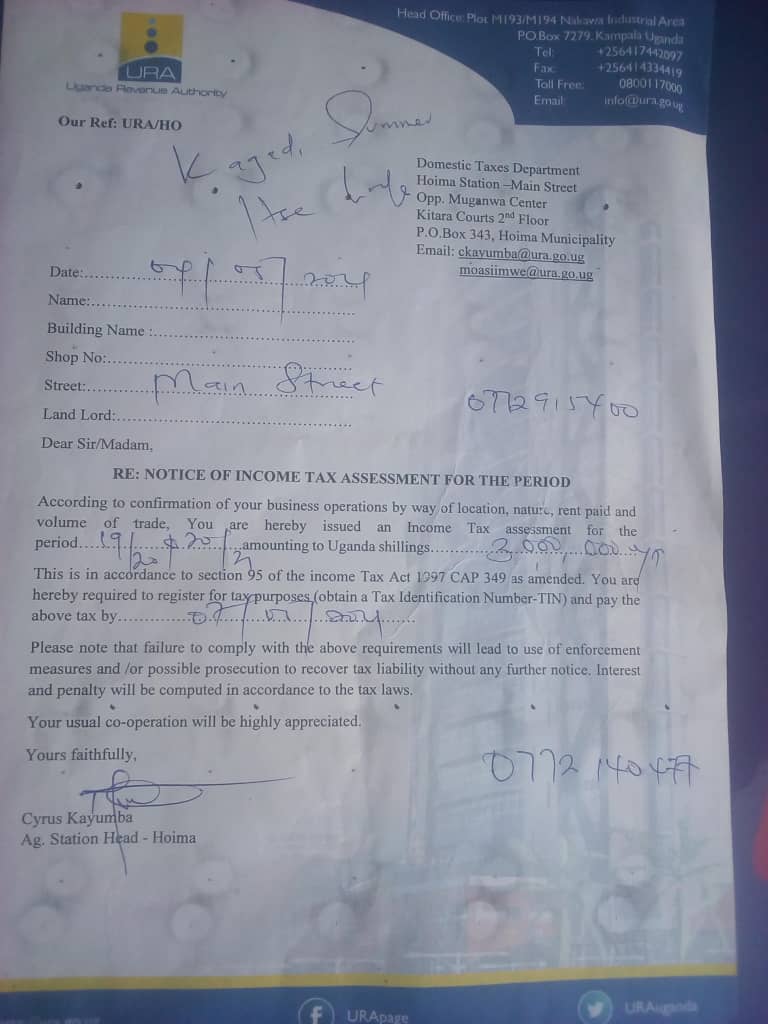 Head Office: Plot M193/M194 Nakawa Industrial Area
P.O.Box 7279. Kampala Uganda
Tel: +256417442097
Fax: +256414334419
Toll Free: 0800117000
Email: info@ura.go.ug
URA
Uganda Revenue Authority
Our Ref: URA/HO
Summer
Domestic Taxes Department
Hoima Station –Main Street
Opp. Muganwa Center
Kitara Courts 2nd Floor
P.O.Box 343, Hoima Municipality
Email: ckayumba@ura.go.ug
moasiimwe@ura.go.ug
Date:
Name:
Building Name :
Shop No:
Street: Main Street
0772915400
Land Lord:
Dear Sir/Madam,
RE: NOTICE OF INCOME TAX ASSESSMENT FOR THE PERIOD
According to confirmation of your business operations by way of location, nature, rent paid and
volume of trade, You are hereby issued an Income Tax assessment for the
period 19/20 & 20/21 amounting to Uganda shillings 3,000,000
This is in accordance to section 95 of the income Tax Act 1997 CAP 349 as amended. You are
hereby required to register for tax purposes (obtain a Tax Identification Number-TIN) and pay the
above tax by
Please note that failure to comply with the above requirements will lead to use of enforcement
measures and /or possible prosecution to recover tax liability without any further notice. Interest
and penalty will be computed in accordance to the tax laws.
Your usual co-operation will be highly appreciated.
Yours faithfully,
0772 140477
Cyrus Kayumba
Ag. Station Head - Hoima
URApage
URAuganda